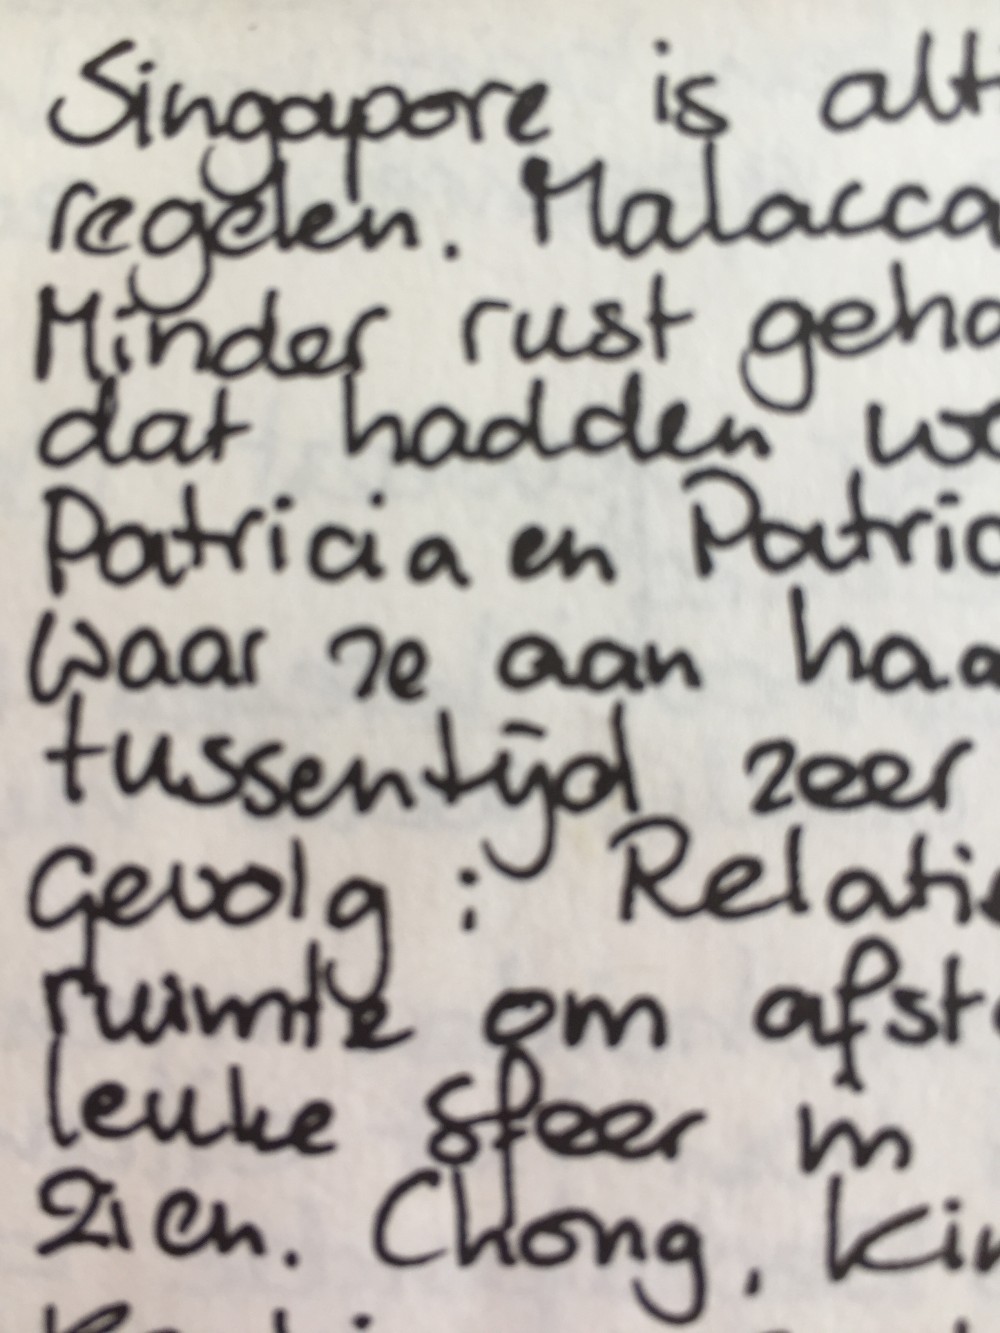 Singapore is alt
regelen. Malacca
Minder rust geha
dat hadden we
Patricia en Patric
Waar ze aan haa
tussentijd zeer
Gevolg : Relatie
ruimte om afst
leuke sfeer in
zien. Chong, Kin